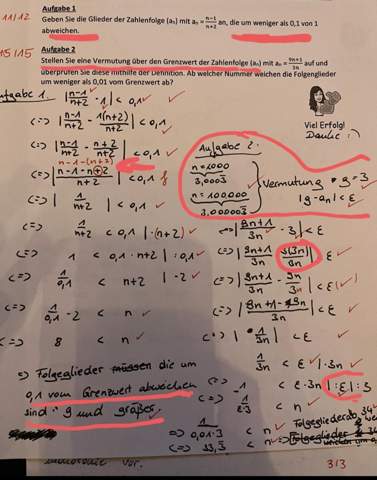 Aufgabe 1
11/12
Geben Sie die Glieder der Zahlenfolge (aₙ) mit aₙ = (n-1)/(n+2) an, die um weniger als 0,1 von 1
abweichen.
15/15
Aufgabe 2
Stellen Sie eine Vermutung über den Grenzwert der Zahlenfolge (aₙ) mit aₙ = (9n+1)/(3n) auf und
überprüfen Sie diese mithilfe der Definition. Ab welcher Nummer weichen die Folgenglieder
um weniger als 0,01 vom Grenzwert ab?
Viel Erfolg!
Danke :)
fgabe 1.
|(n-1)/(n+2) - 1| < 0,1
<=> |(n-1)/(n+2) - 1(n+2)/(n+2)| < 0,1
<=> |(n-1)/(n+2) - (n+2)/(n+2)| < 0,1
n-1-(n+2)
<=> |(n-1-n+2)/(n+2)| < 0,1 f
<=> |1/(n+2)| < 0,1
<=> 1/(n+2) < 0,1 |·(n+2)
<=> 1 < 0,1 · n+2 |:0,1
<=> 1/0,1 < n+2 |-2
<=> 1/0,1 - 2 < n
<=> 8 < n
=> Folgeglieder müssen die um
0,1 vom Grenzwert abweichen
sind 9 und größer.
Aufgabe 2.
n=1000
3,0003̅
n=100000
3,000003̅
Vermutung g=3
|g-aₙ| < ε
|(9n+1)/(3n) - 3| < ε
<=> |(9n+1)/(3n) - 3(3n)/(3n)| < ε
<=> |(9n+1)/(3n) - 9n/(3n)| < ε (✓)
<=> |(9n+1-9n)/(3n)| < ε
<=> |1/(3n)| < ε
1/(3n) < ε |·3n
<=> 1 < ε·3n |:ε|:3
<=> 1/(ε·3) < n
=> 1/(0,01·3) < n
<=> 33,3̅ < n
Folgeglieder ab 34
=> Folgeglieder
313